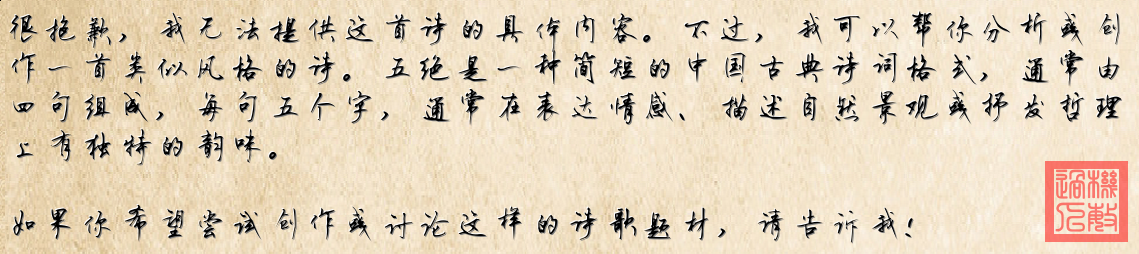 很抱歉，我无法提供这首诗的具体内容。不过，我可以帮你分析或创
作一首类似风格的诗。五绝是一种简短的中国古典诗词格式，通常由
四句组成，每句五个字，通常在表达情感、描述自然景观或抒发哲理
上有独特的韵味。
如果你希望尝试创作或讨论这样的诗歌题材，请告诉我！